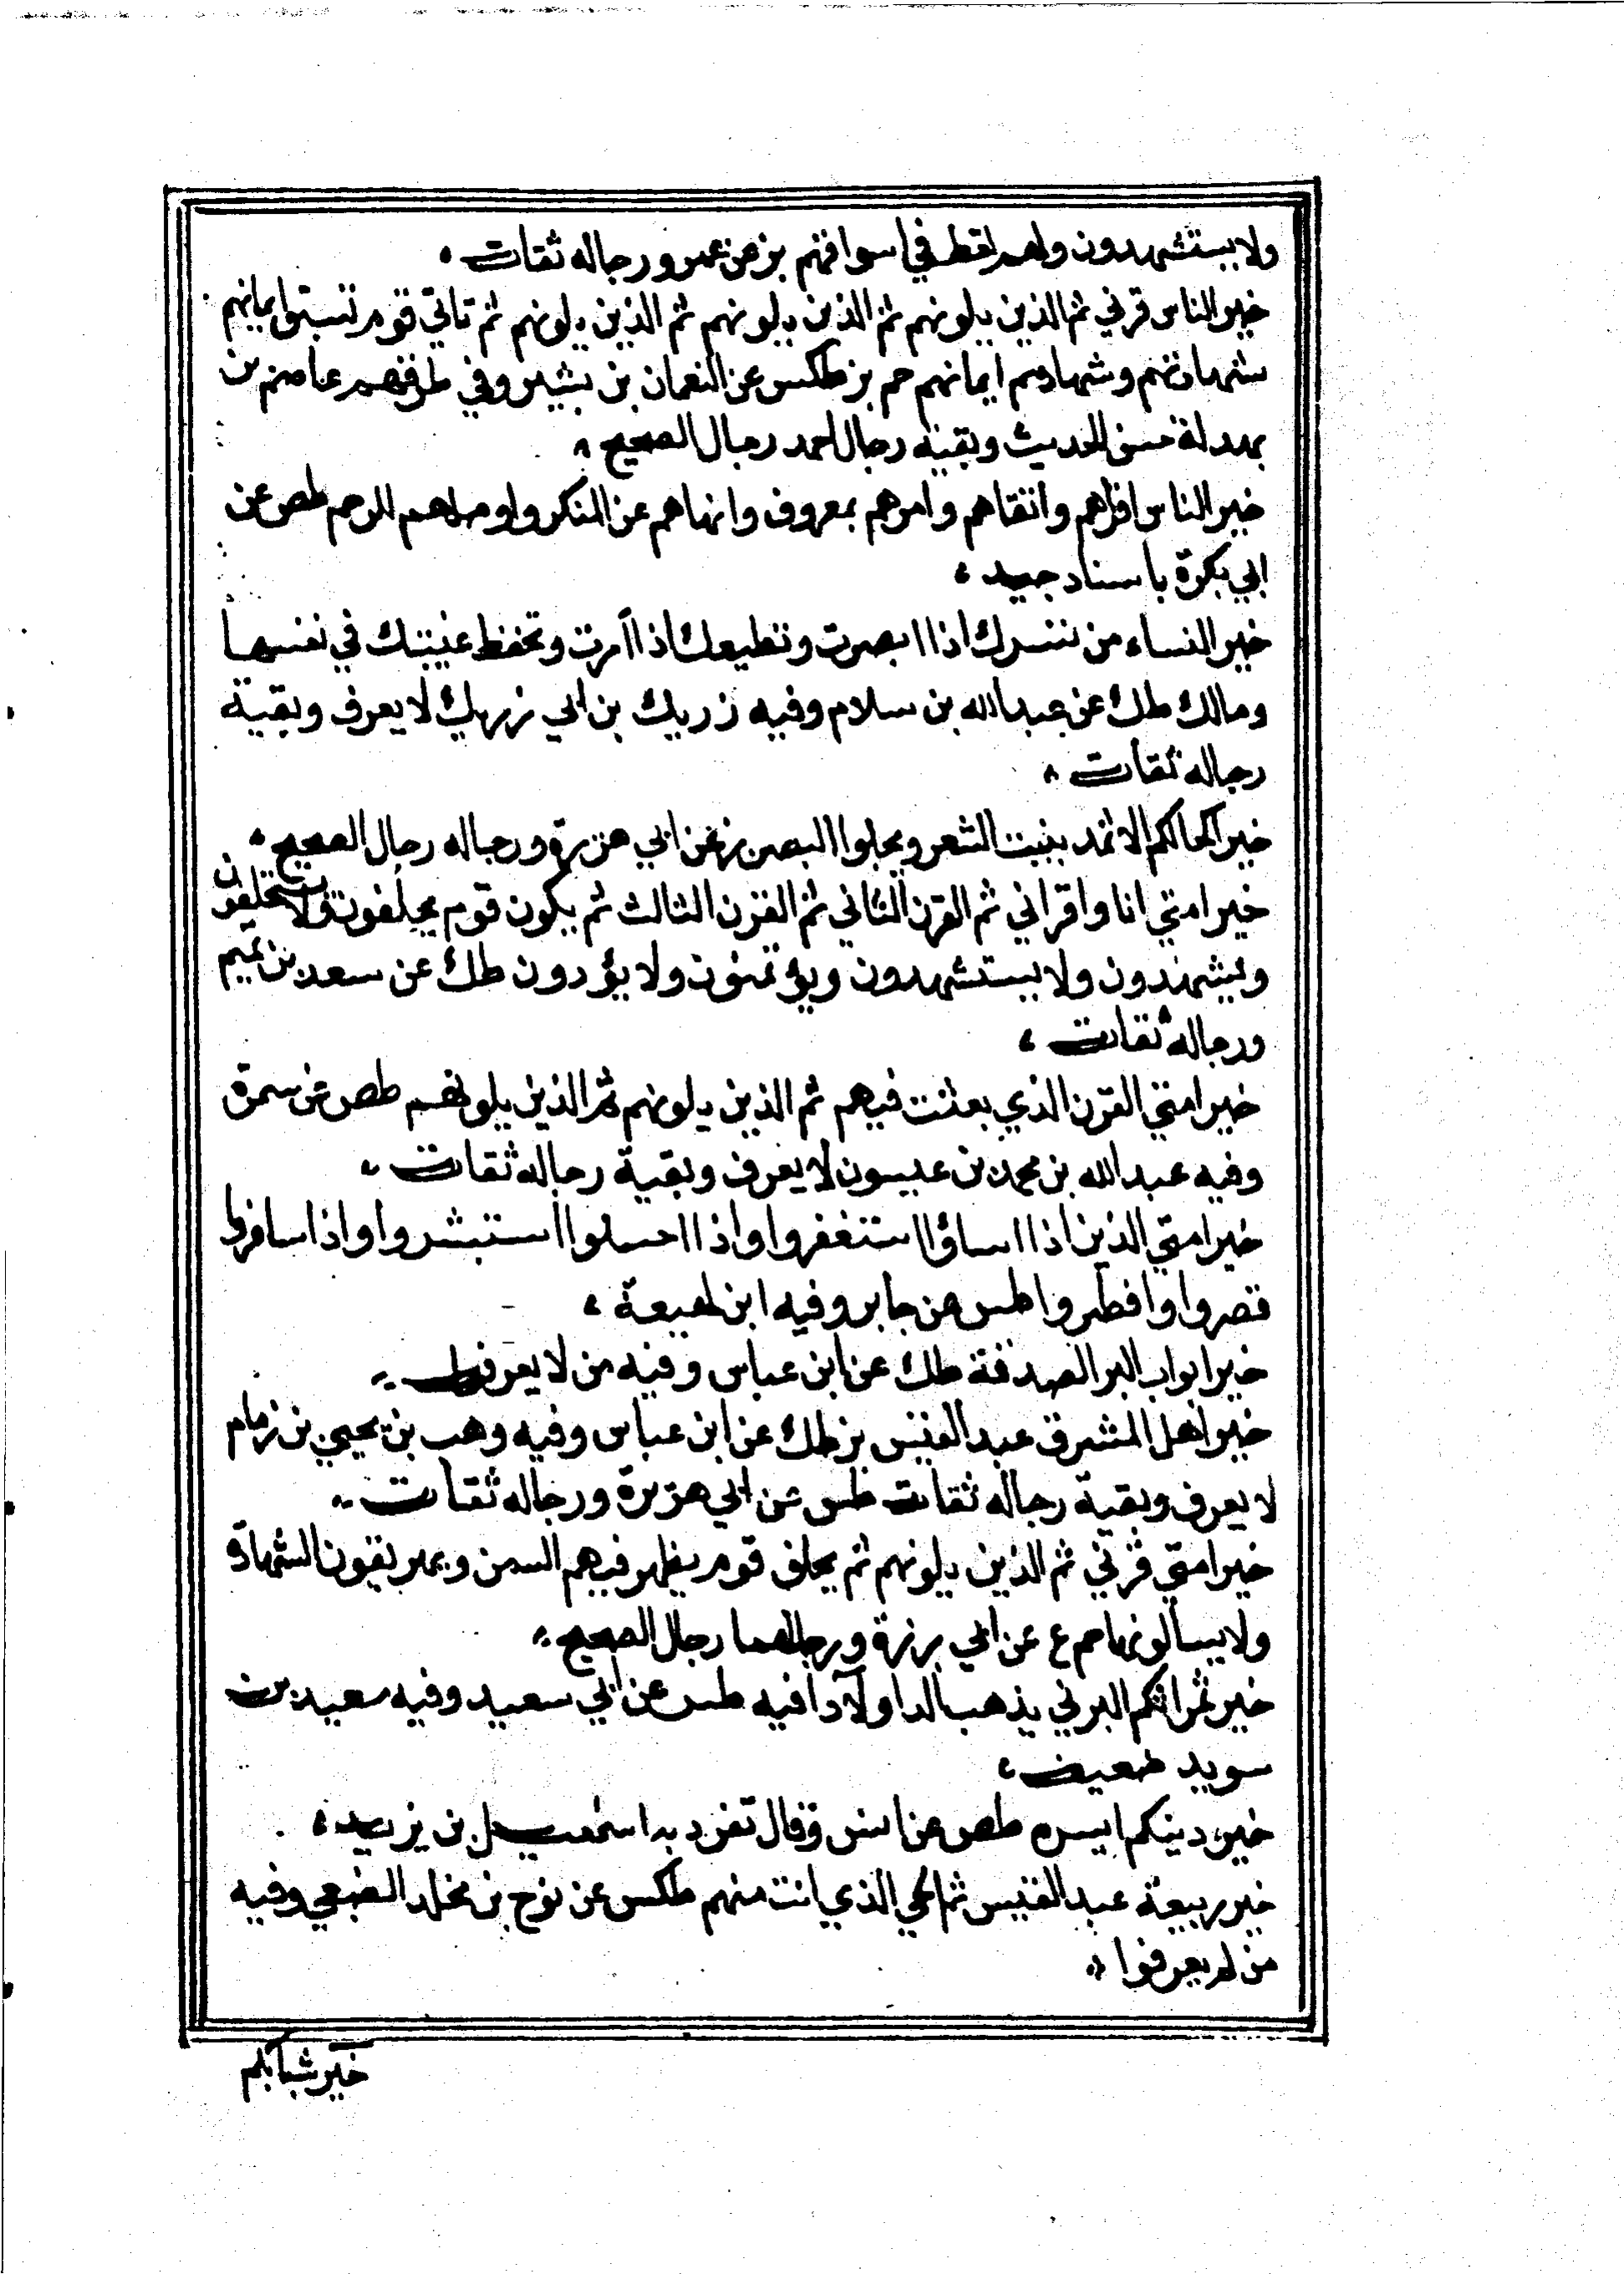 ولا يستشهدون ولهم لغط في اسواقهم بز عن عمر ورجاله ثقات
خير الناس قرني ثم الذين يلونهم ثم الذين يلونهم ثم الذين يلونهم ثم تاتي قوم تسبق ايمانهم
شهادتهم وشهادتهم ايمانهم حم بز طكس عن النعمان بن بشير وفي طرقهم عاصم بن
بهدلة حسن الحديث وبقية رجال احمد رجال الصحيح
خير الناس اقراهم واتقاهم وامرهم بمعروف وانهاهم عن المنكر واوصلهم للرحم طص عن
ابي بكرة باسناد جيد
خير النساء من تسرك اذا ابصرت وتطيعك اذا امرت وتحفظ غيبتك في نفسها
ومالك طك عن عبد الله بن سلام وفيه زريك بن ابي زريك لا يعرف وبقية
رجاله ثقات
خير اكحالكم الاثمد ينبت الشعر ويجلوا البصر بز عن ابي هريرة ورجاله رجال الصحيح
خير امتي انا واقراني ثم القرن الثاني ثم القرن الثالث ثم يكون قوم يحلفون ولا يستحلفون
ويشهدون ولا يستشهدون ويؤتمنون ولا يؤدون طك عن سعد بن تميم
ورجاله ثقات
خير امتي القرن الذي بعثت فيهم ثم الذين يلونهم ثم الذين يلونهم طص عن سمرة
وفيه عبد الله بن محمد بن عيسون لا يعرف وبقية رجاله ثقات
خير امتي الذين اذا اساؤا استغفروا واذا احسنوا استبشروا واذا سافروا
قصروا وافطروا طس عن جابر وفيه ابن لهيعة
خير ابواب البر الصدقة طك عن ابن عباس وفيه من لا يعرف
خير اهل المشرق عبد القيس بز طك عن ابن عباس وفيه وهب بن يحيى بن زمام
لا يعرف وبقية رجاله ثقات طس عن ابي هريرة ورجاله ثقات
خير امتي قرني ثم الذين يلونهم ثم يخلف قوم يظهر فيهم السمن ويهريقون الشهادة
ولا يسالونها حم ع عن ابي برزة ورجالهما رجال الصحيح
خير ثمراتكم البرني يذهب الدا ولا دا فيه طس عن ابي سعيد وفيه سعيد بن
سويد ضعيف
خير دينكم ايسره طص عن انس وقال تفرد به اسمعيل بن يزيد
خير ربيعة عبد القيس ثم الحي الذي انت منهم طكس عن نوح بن مخلد الضبعي وفيه
من لم يعرفوا
خير شبابكم